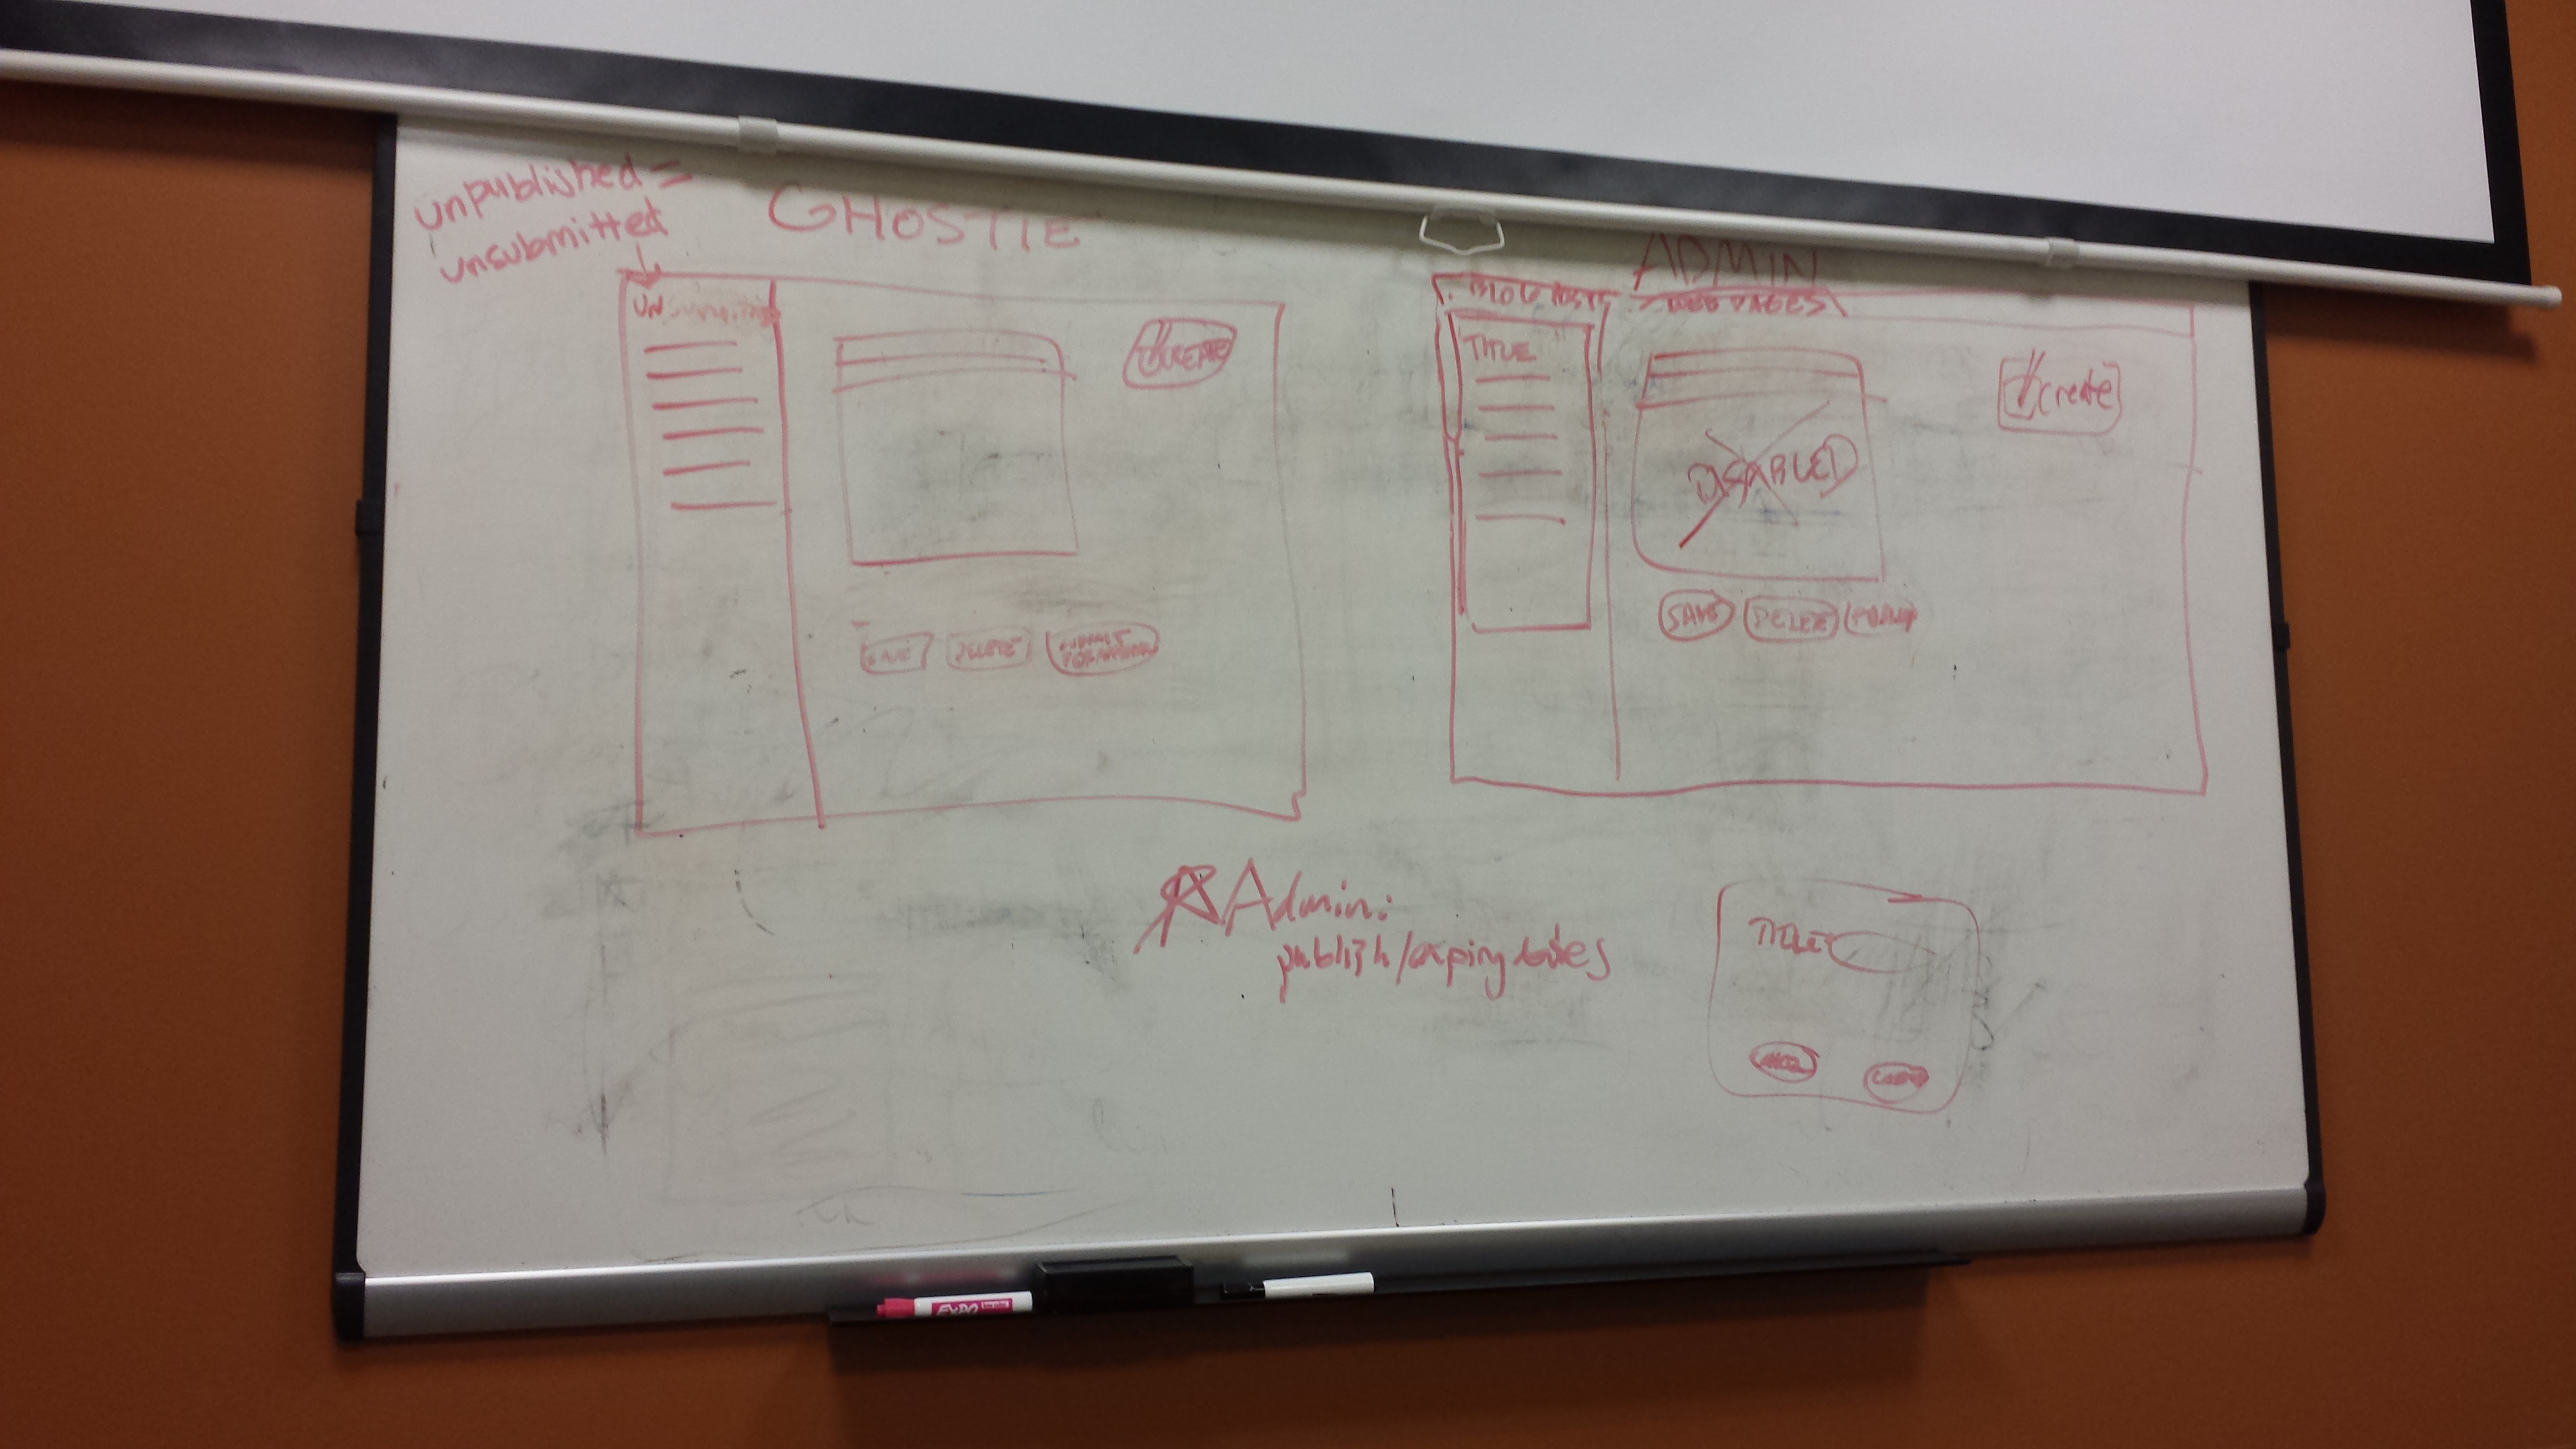 unpublished =
unsubmitted
GHOSTIE
UNSUBMITTED
CREATE
SAVE
DELETE
SUBMIT
FOR APPROVAL
ADMIN
BLOG POSTS
WEB PAGES
TITLE
create
DISABLED
SAVE
DELETE
Admin:
publish/expiry dates
TITLE
CREATE
EXPO